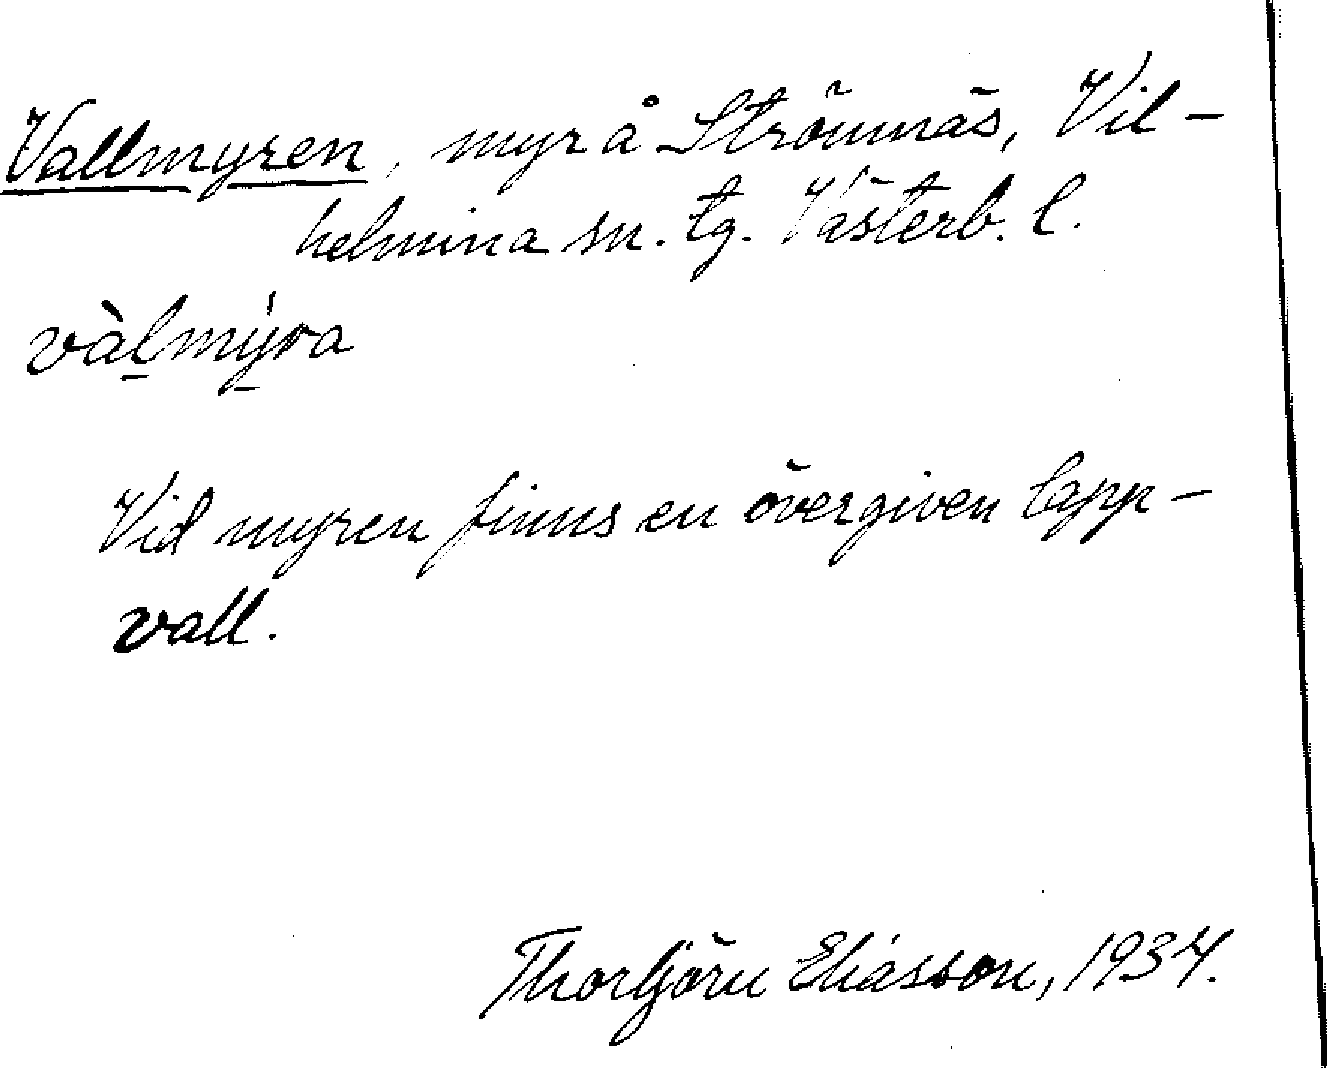 Vallmyren, myr å Strömnäs, Vil-
helmina sn. tg. Västerb. l.
vàl̠mý̠ra
Vid myren finns en övergiven lapp-
vall.
Thorbjörn Eliasson, 1934.